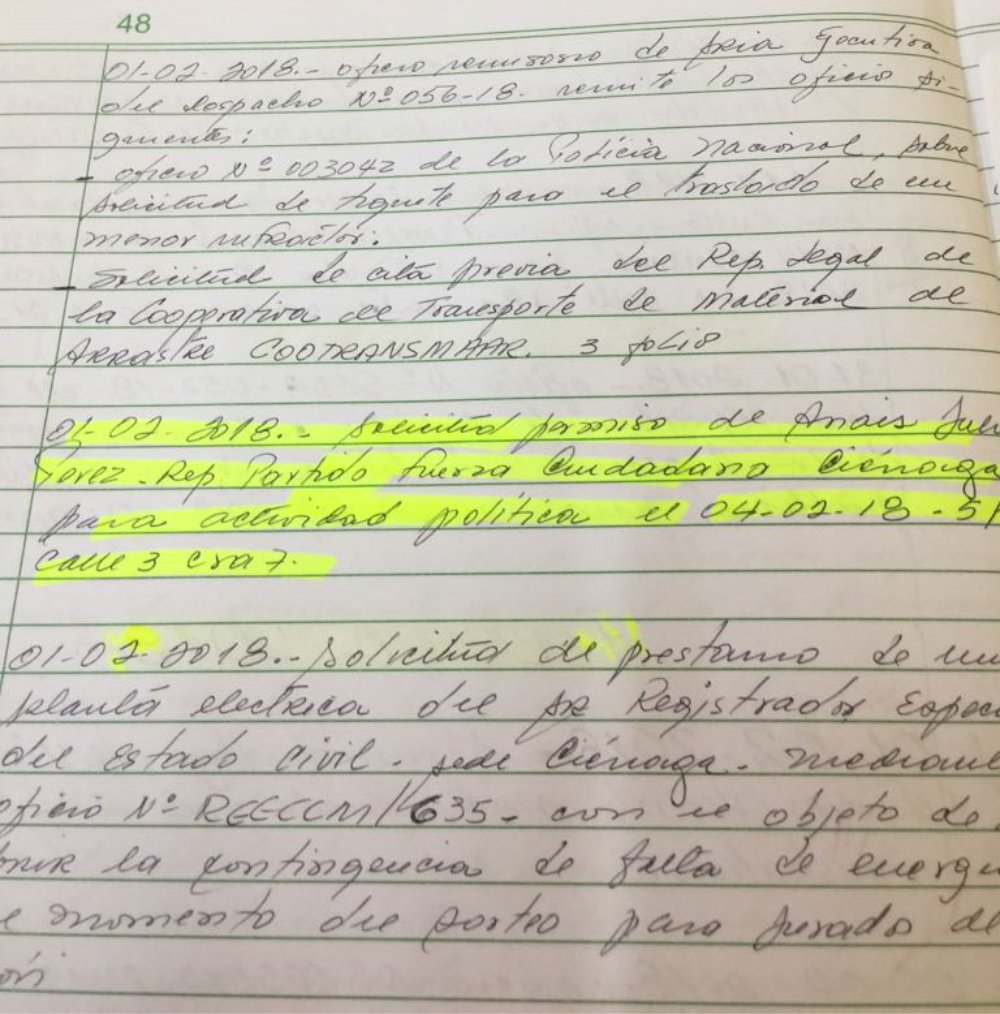 48
01-02-2018.- oficio remisorio de sria Ejecutiva
del despacho Nº 056-18. remite los oficio si-
guientes:
- oficio Nº 003042 de la Policia Nacional, sobre
solicitud de tiquete para el traslado de un
menor infractor.
- Solicitud de cita previa del Rep. Legal de
la Cooperativa de Transporte de Material de
ARRastRe COOTRANSMAAR. 3 folio
01-02-2018.- solicitud permiso de Anais Jule
Perez - Rep. Partido Fuerza Ciudadana Ciénaga
para actividad política el 04-02-18 - 5
Calle 3 cra 7.
01-02-2018.- Solicitud de prestamo de un
planta electrica del sr Registrador Espec
del Estado Civil - sede Ciénaga - mediant
oficio Nº REECCM/635- con el objeto de
la contingencia de falla de energi
e momento del sorteo para jurado de
ón